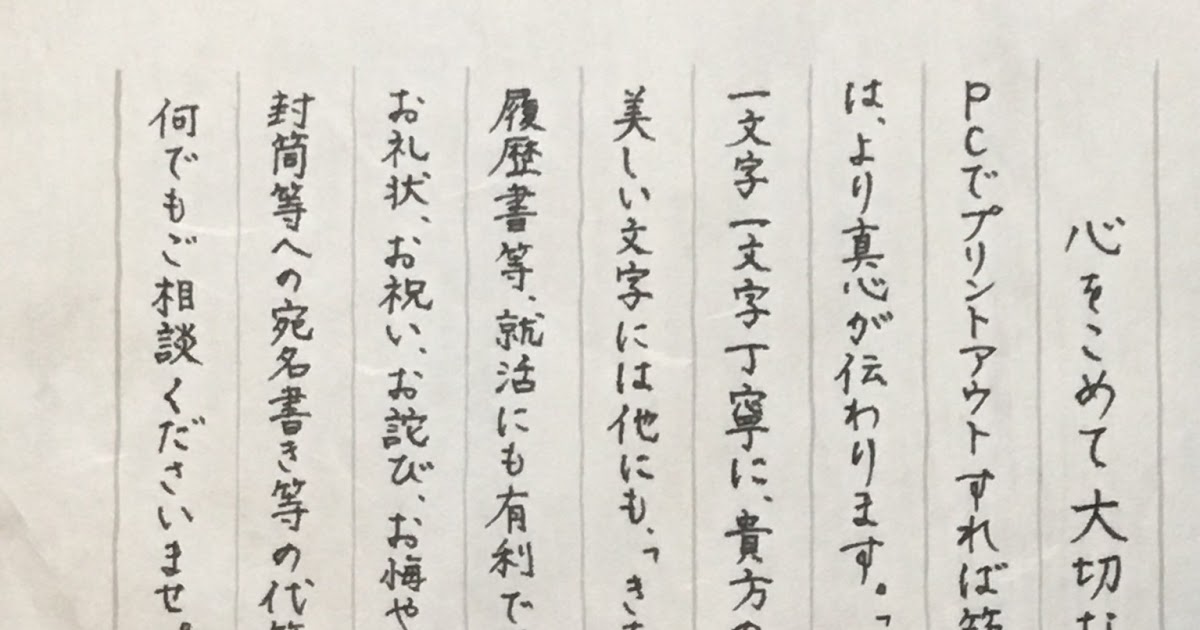 心をこめて大切な
PCでプリントアウトすれば簡
は、より真心が伝わります。「
一文字一文字丁寧に、貴方の
美しい文字には他にも、「きち
履歴書等、就活にも有利で
お礼状、お祝い、お詫び、お悔や
封筒等への宛名書き等の代筆
何でもご相談くださいませ。